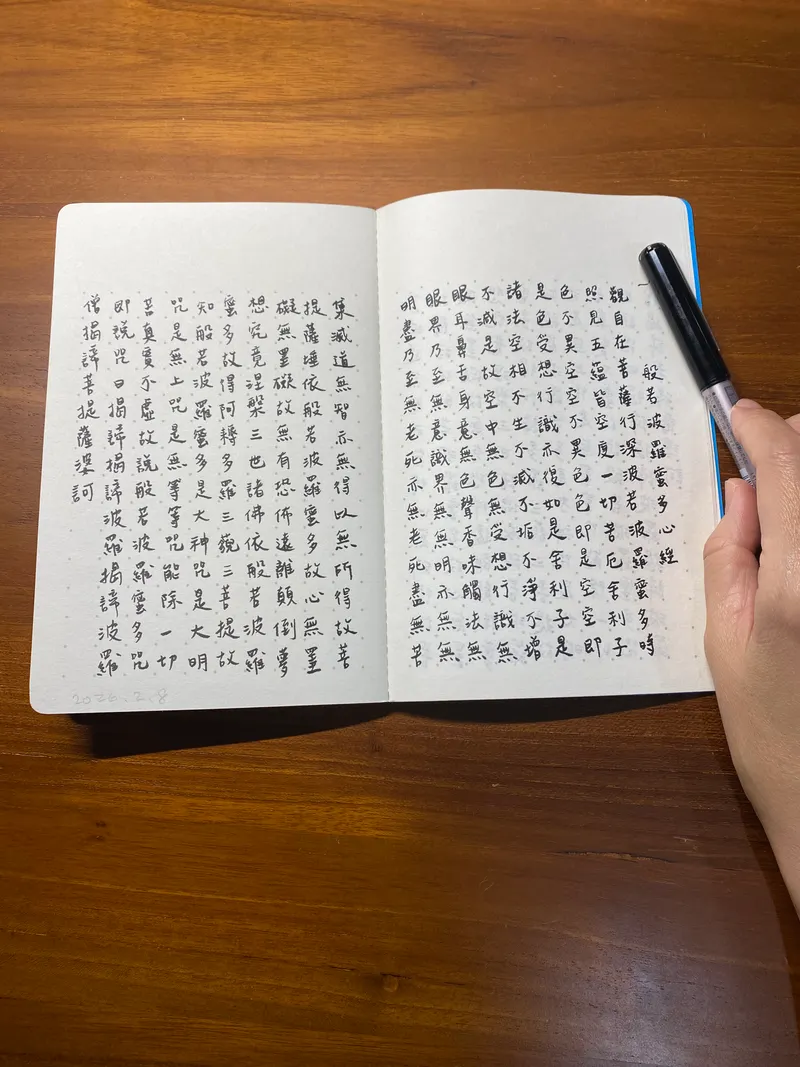 般若波羅蜜多心經
觀自在菩薩行深波若波羅蜜多時
照見五蘊皆空度一切苦厄舍利子
色不異空空不異色色即是空空即
是色受想行識亦復如是舍利子是
諸法空相不生不滅不垢不淨不增
不減是故空中無色無受想行識無
眼耳鼻舌身意無色聲香味觸法無
眼界乃至無意識界無無明亦無無
明盡乃至無老死亦無老死盡無苦
集滅道無智亦無得以無所得故菩
提薩埵依般若波羅蜜多故心無罣
礙無罣礙故無有恐佈遠離顛倒夢
想究竟涅槃三世諸佛依般若波羅
蜜多故得阿耨多羅三藐三菩提故
知般若波羅蜜多是大神咒是大明
咒是無上咒是無等等咒能除一切
苦真實不虛故說般若波羅蜜多咒
即說咒曰揭諦揭諦波羅揭諦波羅
僧揭諦菩提薩婆訶
2022.2.8